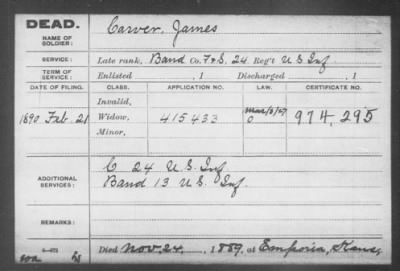 DEAD.
NAME OF SOLDIER: Carver, James
SERVICE: Late rank, Band Co. F&S, 24 Reg't U S Inf
TERM OF SERVICE: Enlisted , 1 Discharged , 1
DATE OF FILING. CLASS. APPLICATION NO. LAW. CERTIFICATE NO.
Invalid,
1890 Feb. 21 Widow, 415433 974,295
Minor,
ADDITIONAL SERVICES: C 24 U.S. Inf
Band 13 U.S. Inf.
REMARKS:
Died Nov. 24, 1889, at Emporia, Kans,